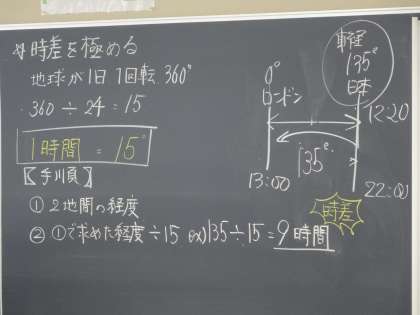 時差を極める
地球が1日1回転 360°
360 ÷ 24 = 15
1時間 = 15°
【手順】
① 2地間の経度
② ①で求めた経度 ÷15 ex)135÷15=9時間
0°
ロンドン
13:00
東経
135°
日本
12:20
135°
22:00
時差